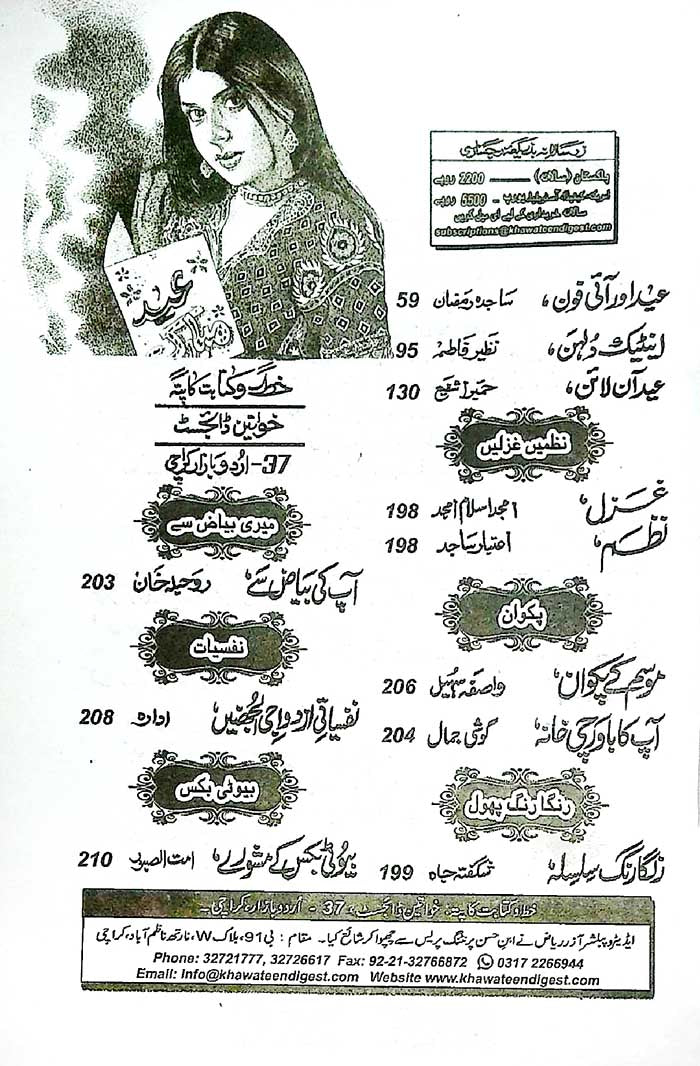 زرسالانہ بذریعہ رجسٹری
پاکستان (سالانہ) ـــــــ 2200 روپے
امریکہ، کینیڈا، آسٹریلیا، یورپ - 5500 روپے
سالانہ خریداری کے لیے ای میل کریں
subscriptions@khawateendigest.com
عید مبارک
عید اور آئی فون، ساجدہ رمضان 59
اینٹیک دلہن، نظیر فاطمہ 95
عید آن لائن، حمیرا شفیع 130
نظمیں غزلیں
غزل، امجد اسلام امجد 198
نظم، اعتبار ساجد 198
پکوان
موسم کے پکوان، واصفہ سہیل 206
آپ کا باورچی خانہ، گوشی جمال 204
رنگا رنگ پھول
رنگا رنگ سلسلہ شگفتہ جاہ 199
خط و کتابت کا پتہ
خواتین ڈائجسٹ
37- اردو بازار کراچی
میری بیاض سے
آپ کی بیاض سے، روحیلہ خان 203
نفسیات
نفسیاتی ازدواجی الجھنیں، ادارہ 208
بیوٹی بکس
بیوٹی بکس کے مشورے، امت الصبور 210
خط و کتابت کا پتہ: خواتین ڈائجسٹ، 37 - اردو بازار، کراچی۔
ایڈیٹر و پبلشر آزر ریاض نے ابن حسن پرنٹنگ پریس سے چھپوا کر شائع کیا۔ مقام : بی 91، بلاک W، نارتھ ناظم آباد، کراچی
Phone: 32721777, 32726617 Fax: 92-21-32766872 0317 2266944
Email: Info@khawateendigest.com Website www.khawateendigest.com